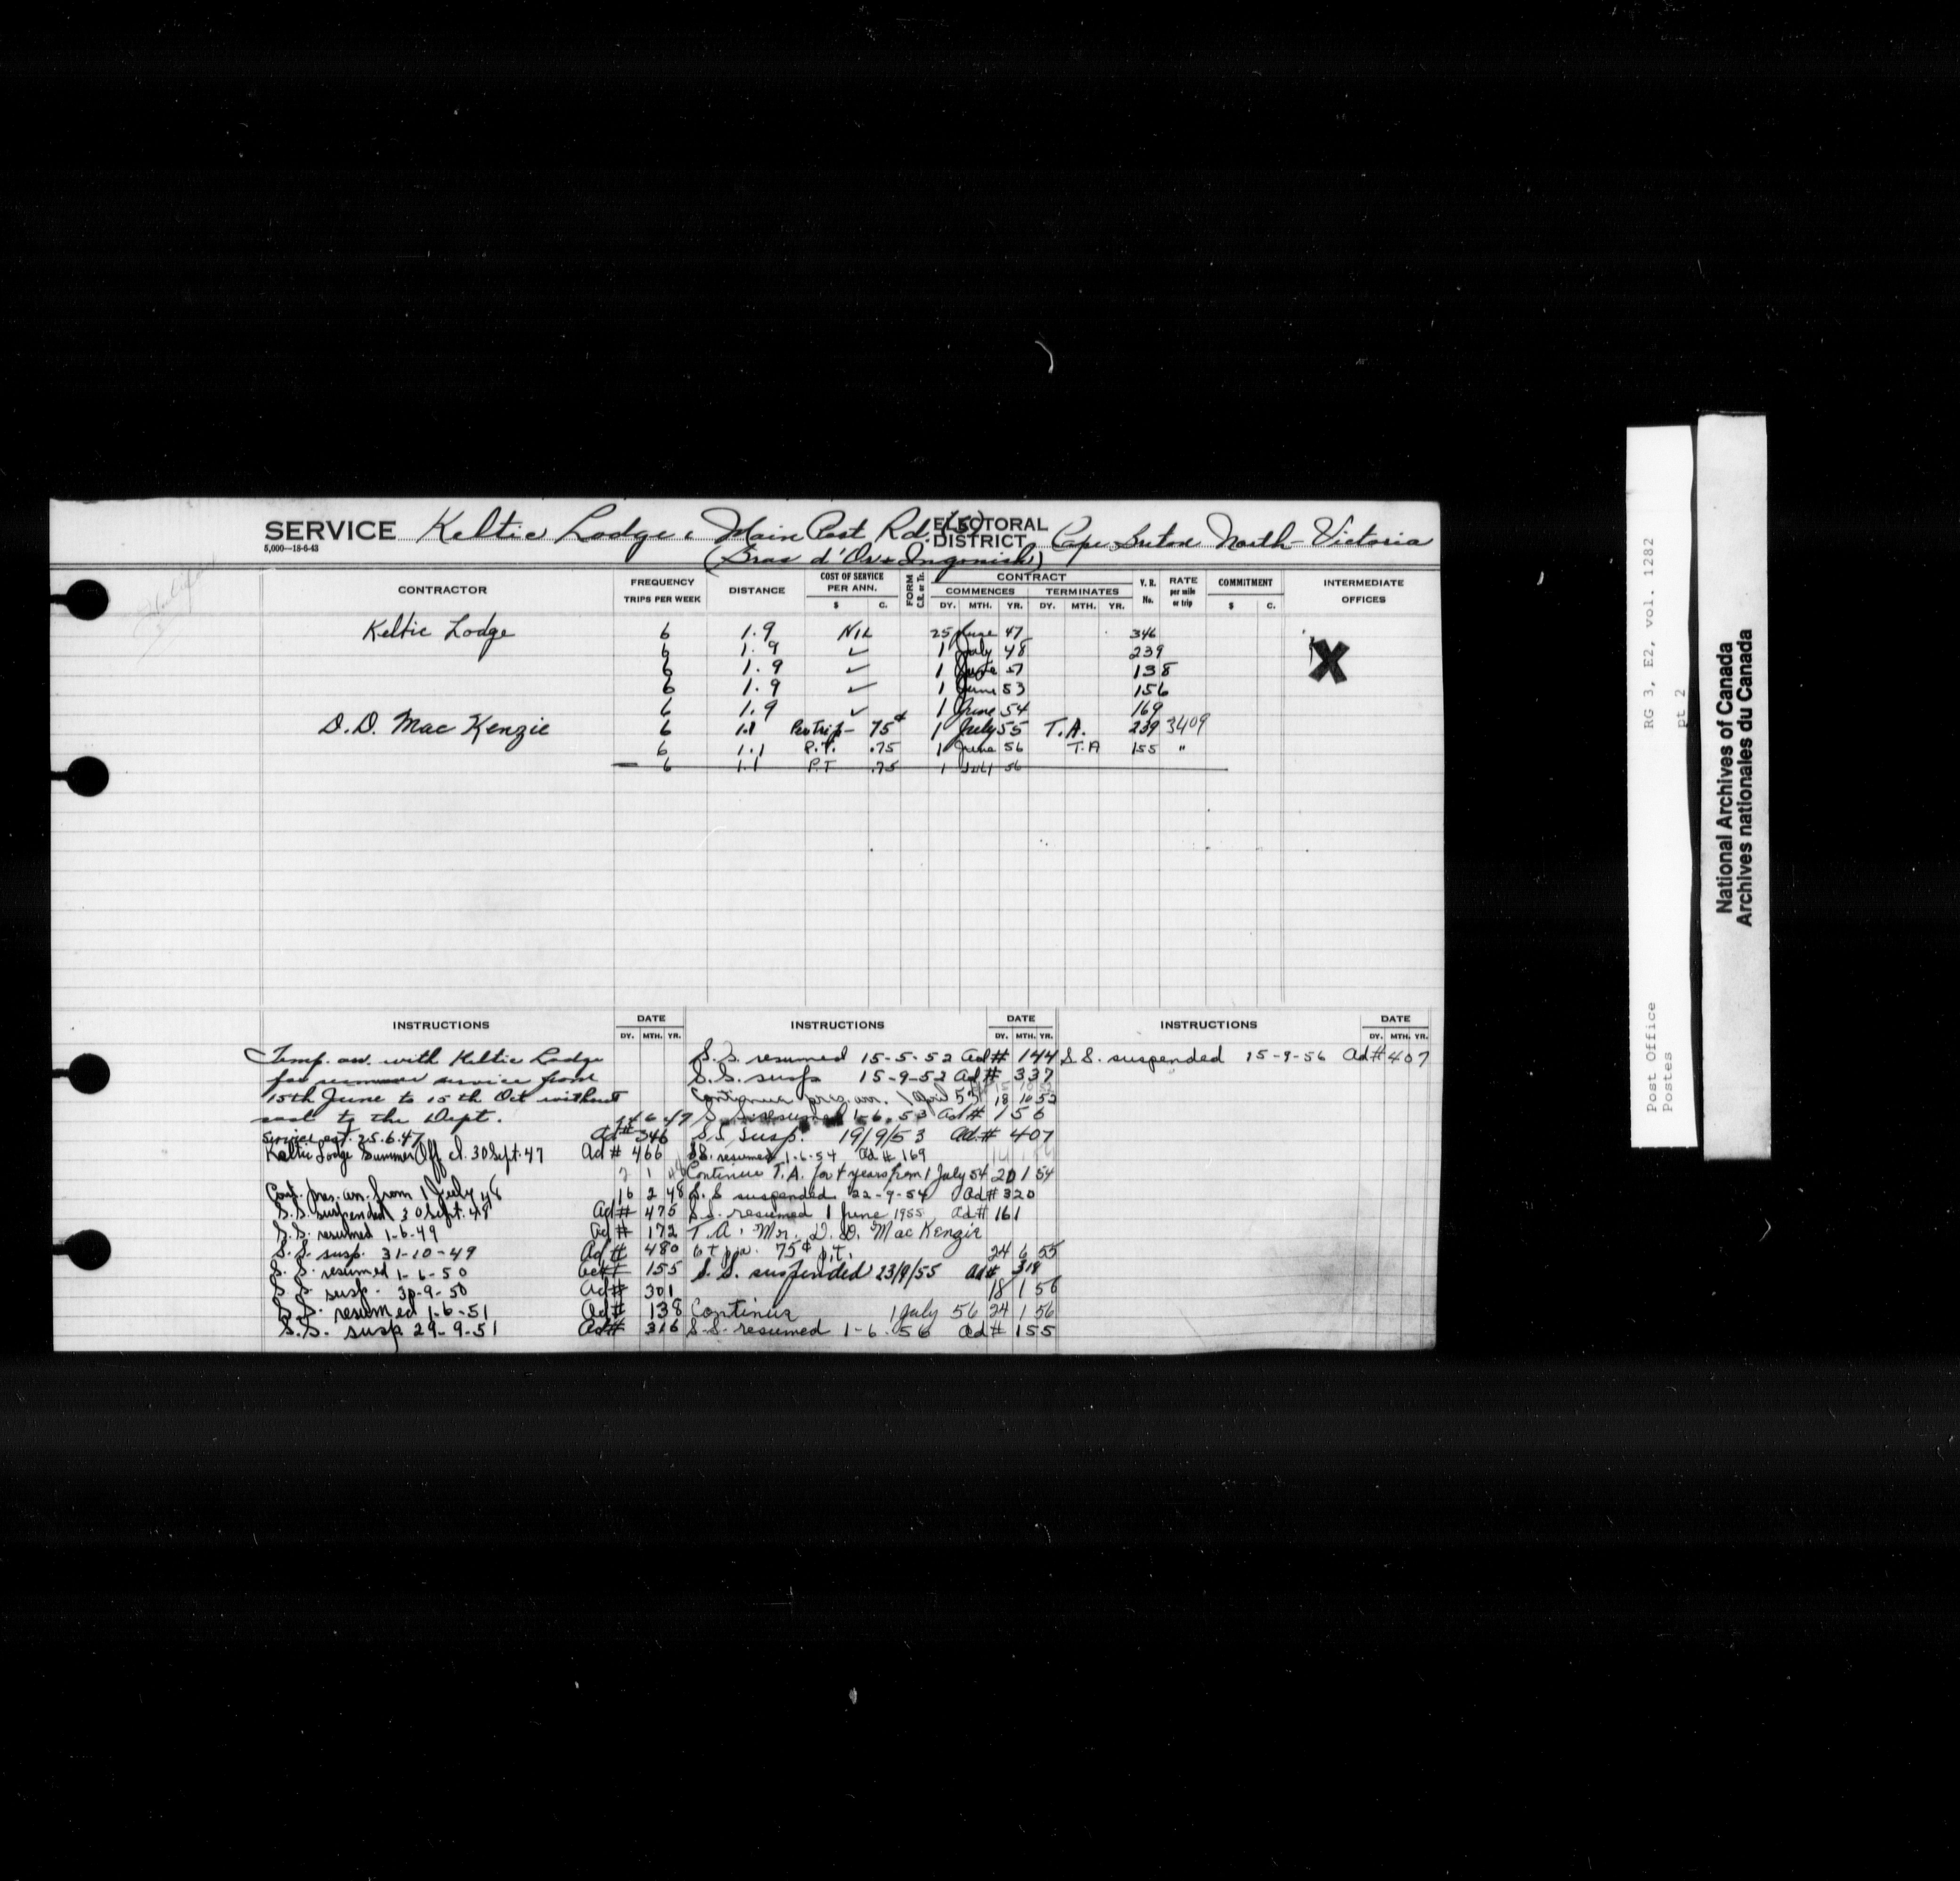 SERVICE Keltic Lodge & Main Post Rd. (SS) ELECTORAL DISTRICT Cape Breton North-Victoria
5,000—18-6-43
(Bras d'Or & Ingonish)
CONTRACTOR FREQUENCY TRIPS PER WEEK DISTANCE COST OF SERVICE PER ANN. $ C. FORM C.R. or Tr. CONTRACT COMMENCES DY. MTH. YR. TERMINATES DY. MTH. YR. V. R. No. RATE per mile or trip COMMITMENT $ C. INTERMEDIATE OFFICES
Keltic Lodge 6 1.9 NIL 25 June 47 346
6 1.9 ✓ 1 July 48 239 X
6 1.9 ✓ 1 June 51 138
6 1.9 ✓ 1 June 53 156
6 1.9 ✓ 1 June 54 169
D.D. Mac Kenzie 6 1.1 Per trip - 75¢ 1 July 55 T.A. 239 3409
6 1.1 P.T. .75 1 June 56 T.A 155 "
6 1.1 P.T .75 1 July 56
INSTRUCTIONS DATE DY. MTH. YR.
Temp. arr. with Keltic Lodge
for summer service from
15th June to 15th Oct without
cost to the Dept.
Service est. 25.6.47 Ad # 346
Keltic Lodge Summer Off cl. 30 Sept. 47 Ad # 466
2 1 48
Cont. pres. arr. from 1 July 48 16 2 48
S.S. suspended 30 Sept. 48 Ad # 475
S.S. resumed 1-6-49 Ad # 172
S.S. susp. 31-10-49 Ad # 480
S.S. resumed 1-6-50 Ad # 155
S.S. susp. 30-9-50 Ad # 301
S.S. resumed 1-6-51 Ad # 138
S.S. susp 29-9-51 Ad # 316
INSTRUCTIONS DATE DY. MTH. YR.
S.S. resumed 15-5-52 Ad # 144
S.S. susp 15-9-52 Ad # 337
Continue pres. arr. 1 April 53 18 10 52
S.S. resumed 1-6-53 Ad # 156
S.S. susp. 19/9/53 Ad. # 407
S.S. resumed 1-6-54 Ad # 169
Continue T.A. for 4 years from 1 July 54 20 1 54
S.S suspended 22-9-54 Ad # 320
S.S. resumed 1 June 1955 Ad # 161
T.A. Mr. D.D. Mac Kenzie
6 t p.w. 75¢ p.t. 24 6 55
S.S. suspended 23/9/55 Ad # 318
18 1 56
Continue 1 July 56 24 1 56
S.S. resumed 1-6-56 Ad # 155
INSTRUCTIONS DATE DY. MTH. YR.
S.S. suspended 15-9-56 Ad # 407
Post Office RG 3, E2, vol. 1282
Postes pt 2
National Archives of Canada
Archives nationales du Canada